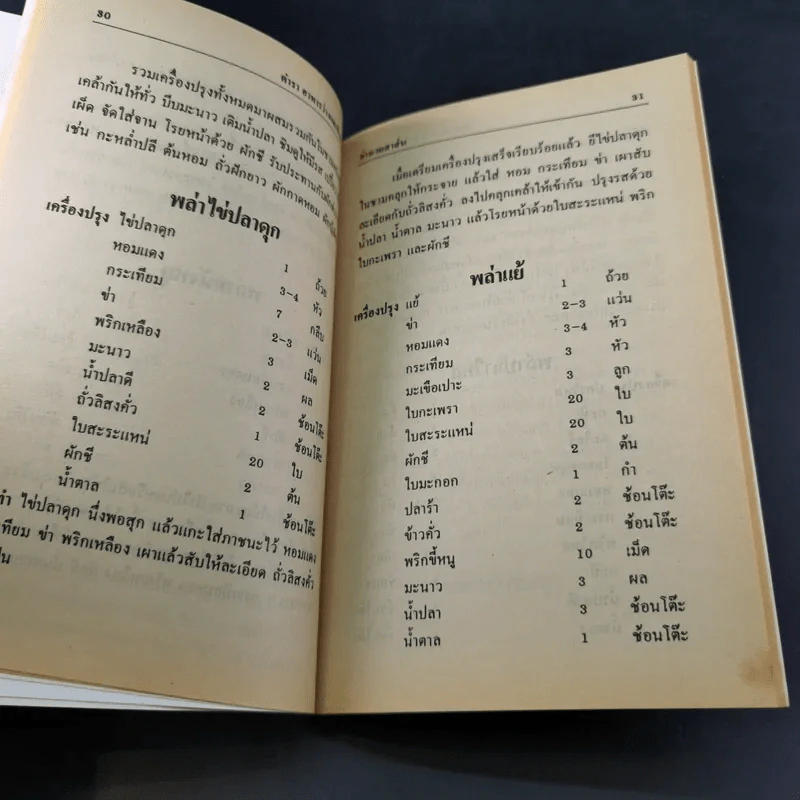 30
ตำรา อาหาร
รวมเครื่องปรุงทั้งหมดมาผสมรวมกันใน
เคล้ากันให้ทั่ว บีบมะนาว เติมน้ำปลา ชิมดูให้มีรส
เผ็ด จัดใส่จาน โรยหน้าด้วย ผักชี รับประทานกับ
เช่น กะหล่ำปลี ต้นหอม ถั่วฝักยาว ผักกาดหอม
พล่าไข่ปลาดุก
เครื่องปรุง ไข่ปลาดุก 1 ถ้วย
หอมแดง 3-4 หัว
กระเทียม 7 กลีบ
ข่า 2-3 แว่น
พริกเหลือง 3 เม็ด
มะนาว 2 ผล
น้ำปลาดี 2 ช้อนโต๊ะ
ถั่วลิสงคั่ว 1 ช้อนโต๊ะ
ใบสะระแหน่ 20 ใบ
ผักชี 2 ต้น
น้ำตาล 1 ช้อนโต๊ะ
ทำ ไข่ปลาดุก นึ่งพอสุก แล้วแกะใส่ภาชนะไว้ หอมแดง
เทียม ข่า พริกเหลือง เผาแล้วสับให้ละเอียด ถั่วลิสงคั่ว
ป่น
31
เมื่อเตรียมเครื่องปรุงเสร็จเรียบร้อยแล้ว ยีไข่ปลาดุก
ในชามคลุกให้กระจาย แล้วใส่ หอม กระเทียม ข่า เผาสับ
ละเอียดกับถั่วลิสงคั่ว ลงไปคลุกเคล้าให้เข้ากัน ปรุงรสด้วย
น้ำปลา น้ำตาล มะนาว แล้วโรยหน้าด้วยใบสะระแหน่ พริก
ใบกะเพรา และผักชี
พล่าแย้
เครื่องปรุง แย้ 1 ถ้วย
ข่า 2-3 แว่น
หอมแดง 3-4 หัว
กระเทียม 3 หัว
มะเขือเปาะ 3 ลูก
ใบกะเพรา 20 ใบ
ใบสะระแหน่ 20 ใบ
ผักชี 2 ต้น
ใบมะกอก 1 กำ
ปลาร้า 2 ช้อนโต๊ะ
ข้าวคั่ว 2 ช้อนโต๊ะ
พริกขี้หนู 10 เม็ด
มะนาว 3 ผล
น้ำปลา 3 ช้อนโต๊ะ
น้ำตาล 1 ช้อนโต๊ะ